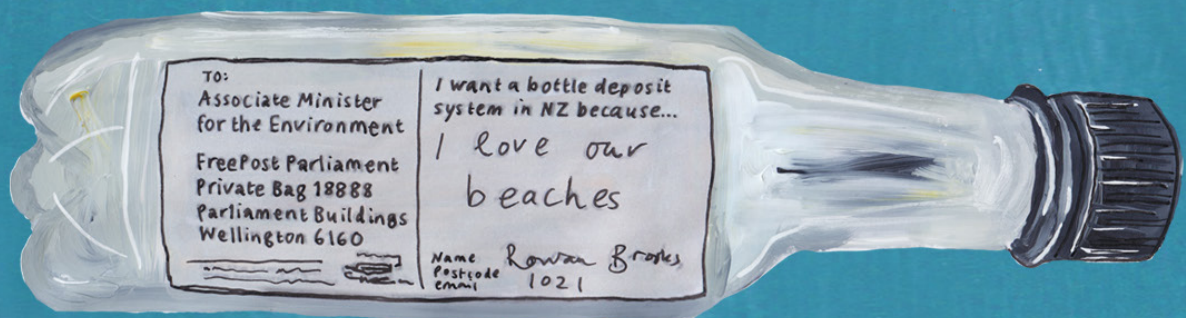 TO:
Associate Minister
for the Environment
FreePost Parliament
Private Bag 18888
Parliament Buildings
Wellington 6160
I want a bottle deposit
system in NZ because...
I love our
beaches
Name Rowan Brooks
Postcode 1021
email